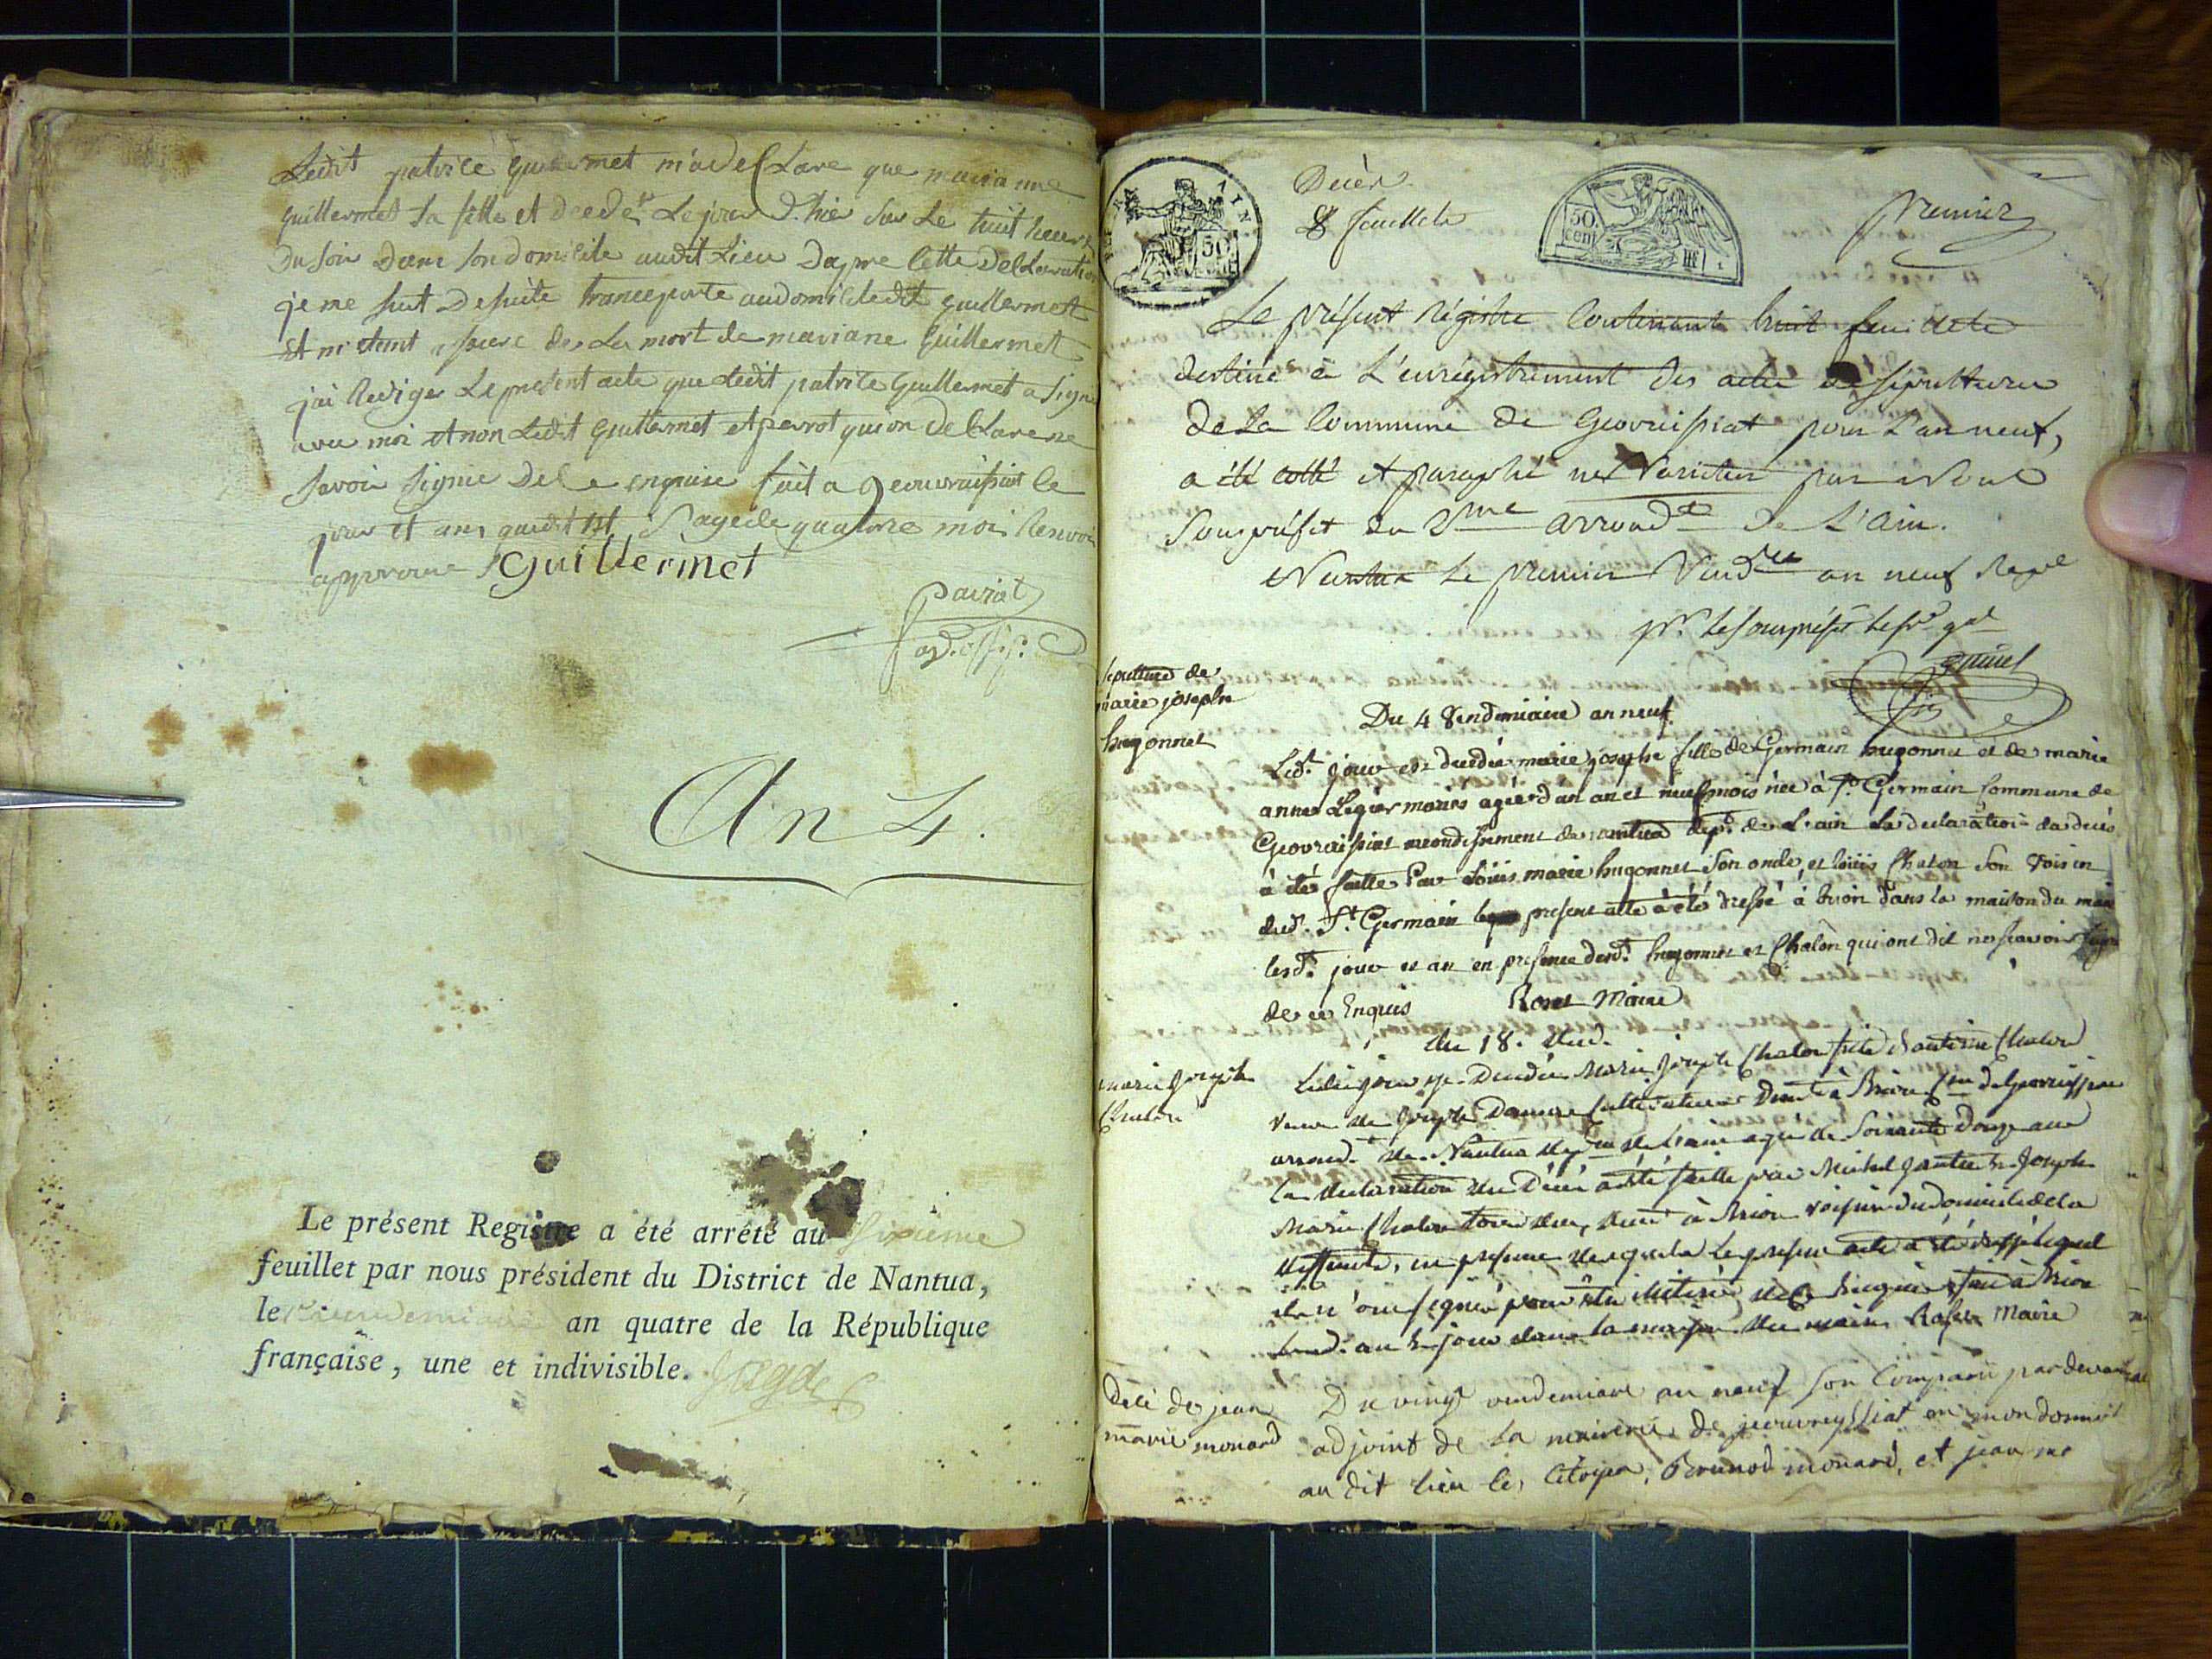 Ledit patrice guillermet m'a declare que marianne
guillermet sa fille et decedé Le jour d'hier sur Le huit heure
du soir dans son domicile audit Lieu dapre cette declaration
je me suit desuite transporte au domicile dudit guillermet
Et m'etant assure de La mort de mariane guillermet
j'ai Rediger Le present acte que Ledit patrice Guillermet a signé
avec moi et non Ledit Guillermet et perrot qui on declare ne
savoir signie de Ce enquise fait a geouvraissiat le
jour et ans quedit est agée de quatorze moi Renvoi
approuve Guillermet
pariat
An 4.
Le présent Registre a été arrêté au sixieme
feuillet par nous président du District de Nantua,
le an quatre de la République
française, une et indivisible.
Décès
8 feuillets
AIN
50
50
cent
premier
Le présent régistre Contenant huit feuillets
destiné à L'enrégistrement des actes de sépultures
de La Commune de Geovrissiat pour L'an neuf,
a été cotté et paraphé ne Varietur par Nous
Sous préfet du 2me arrondt de L'ain.
Nantua Le premier Vendre an neuf
pr. Le sous préfet
sepulture de
marie josephe
hugonnet
Du 4 Vendemiaire an neuf.
Led.t jour est decedée marie josephe fille de Germain hugonnet et de marie
anne Legier moires agée d'un an et neuf mois née à St. Germain Commune de
Geovraissiat arrondissement de nantua dep.t de L'ain La declaration du decès
à été faitte Par Loüis marie hugonnet son oncle, et loüis Chalon son voisin
dud. St. Germain le present acte à été dressé à brion dans la maison du maire
lesd.t jour et an en presence desd.t hugonnet et Chalon qui ont dit ne scavoir signer
de ce Enquis Rosset Maire
du 18. Vend.
marie Joseph
Chalon
Ledit jour est Decedée Marie Joseph Chalon fille d'antoine Chalon
veuve de Joseph Damour Cultivateur Demt à Brion Cne de Geovrissiat
arrond.t de Nantua dept de L'ain agée de Soixante Douze ans
la declaration du Décès a été faitte par Michel Joseph
Marie Chalon demt à Brion voisin du domicile de la
deffunte, en presence desquels le present acte a été dressé lequel
ils n'ont signé pour être illitérés de ce Enquis fait à Brion
lesd. an & jour dans la maison du maire Rosset Maire
Décè de jean
marie monard
Du vingt vendemiaire an neuf son Comparu par devant
adjoint de la mairerie de geouvreyssiat en mon domicil
au dit lieu les Citoyen, Brunod monard, et jean me